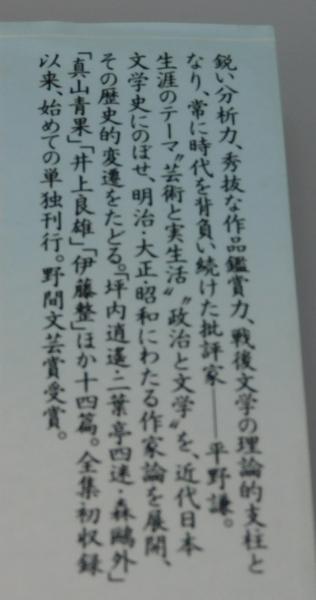 鋭い分析力、秀抜な作品鑑賞力、戦後文学の理論的支柱と
なり、常に時代を背負い続けた批評家――平野謙。
生涯のテーマ〝芸術と実生活〟〝政治と文学〟を、近代日本
文学史にのぼせ、明治・大正・昭和にわたる作家論を展開、
その歴史的変遷をたどる。「坪内逍遙・二葉亭四迷・森鷗外」
「真山青果」「井上良雄」「伊藤整」ほか十四篇。全集・初収録
以来、始めての単独刊行。野間文芸賞受賞。